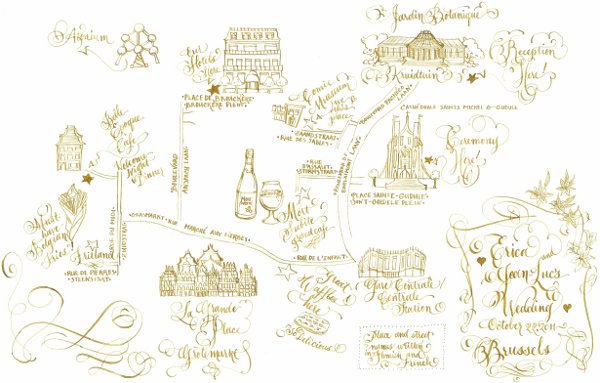 Atomium
Our
Hotels
Here
Jardin Botanique
Kruidtuin
Reception
Here!
PLACE DE BROUCKÈRE
BROUCKÈRE PLEIN
Comic
Museum
ZANDSTRAAT
RUE DES SABLES
CATHÉDRALE SAINTS MICHEL & GUDULE
Ceremony
Here!
RUE
D'ASSAUT
STORMSTRAAT
BOULEVARD
ANSPACH LAAN
PLACE SAINTE-GUDULE
SINT-GOEDELE PLEIN
Café
Welcome
Night
Dinner
Must
have
Belgian
Fries
Fritland
RUE DE PIERRES
STEENSTRAAT
RUE DU MIDI
ZUIDSTRAAT
GRASMARKT • RUE MARCHÉ AUX HERBES
Mort
Subite
grand café
RUE DE L'INFANTE
La Grande
Place
Grote Markt
Great
Waffles
Here
Delicious
Gare Centrale
Centrale
Station
Place and street
names written
in Flemish and
French
Erica
and
Jean-Luc's
Wedding
October 22 2011
Brussels